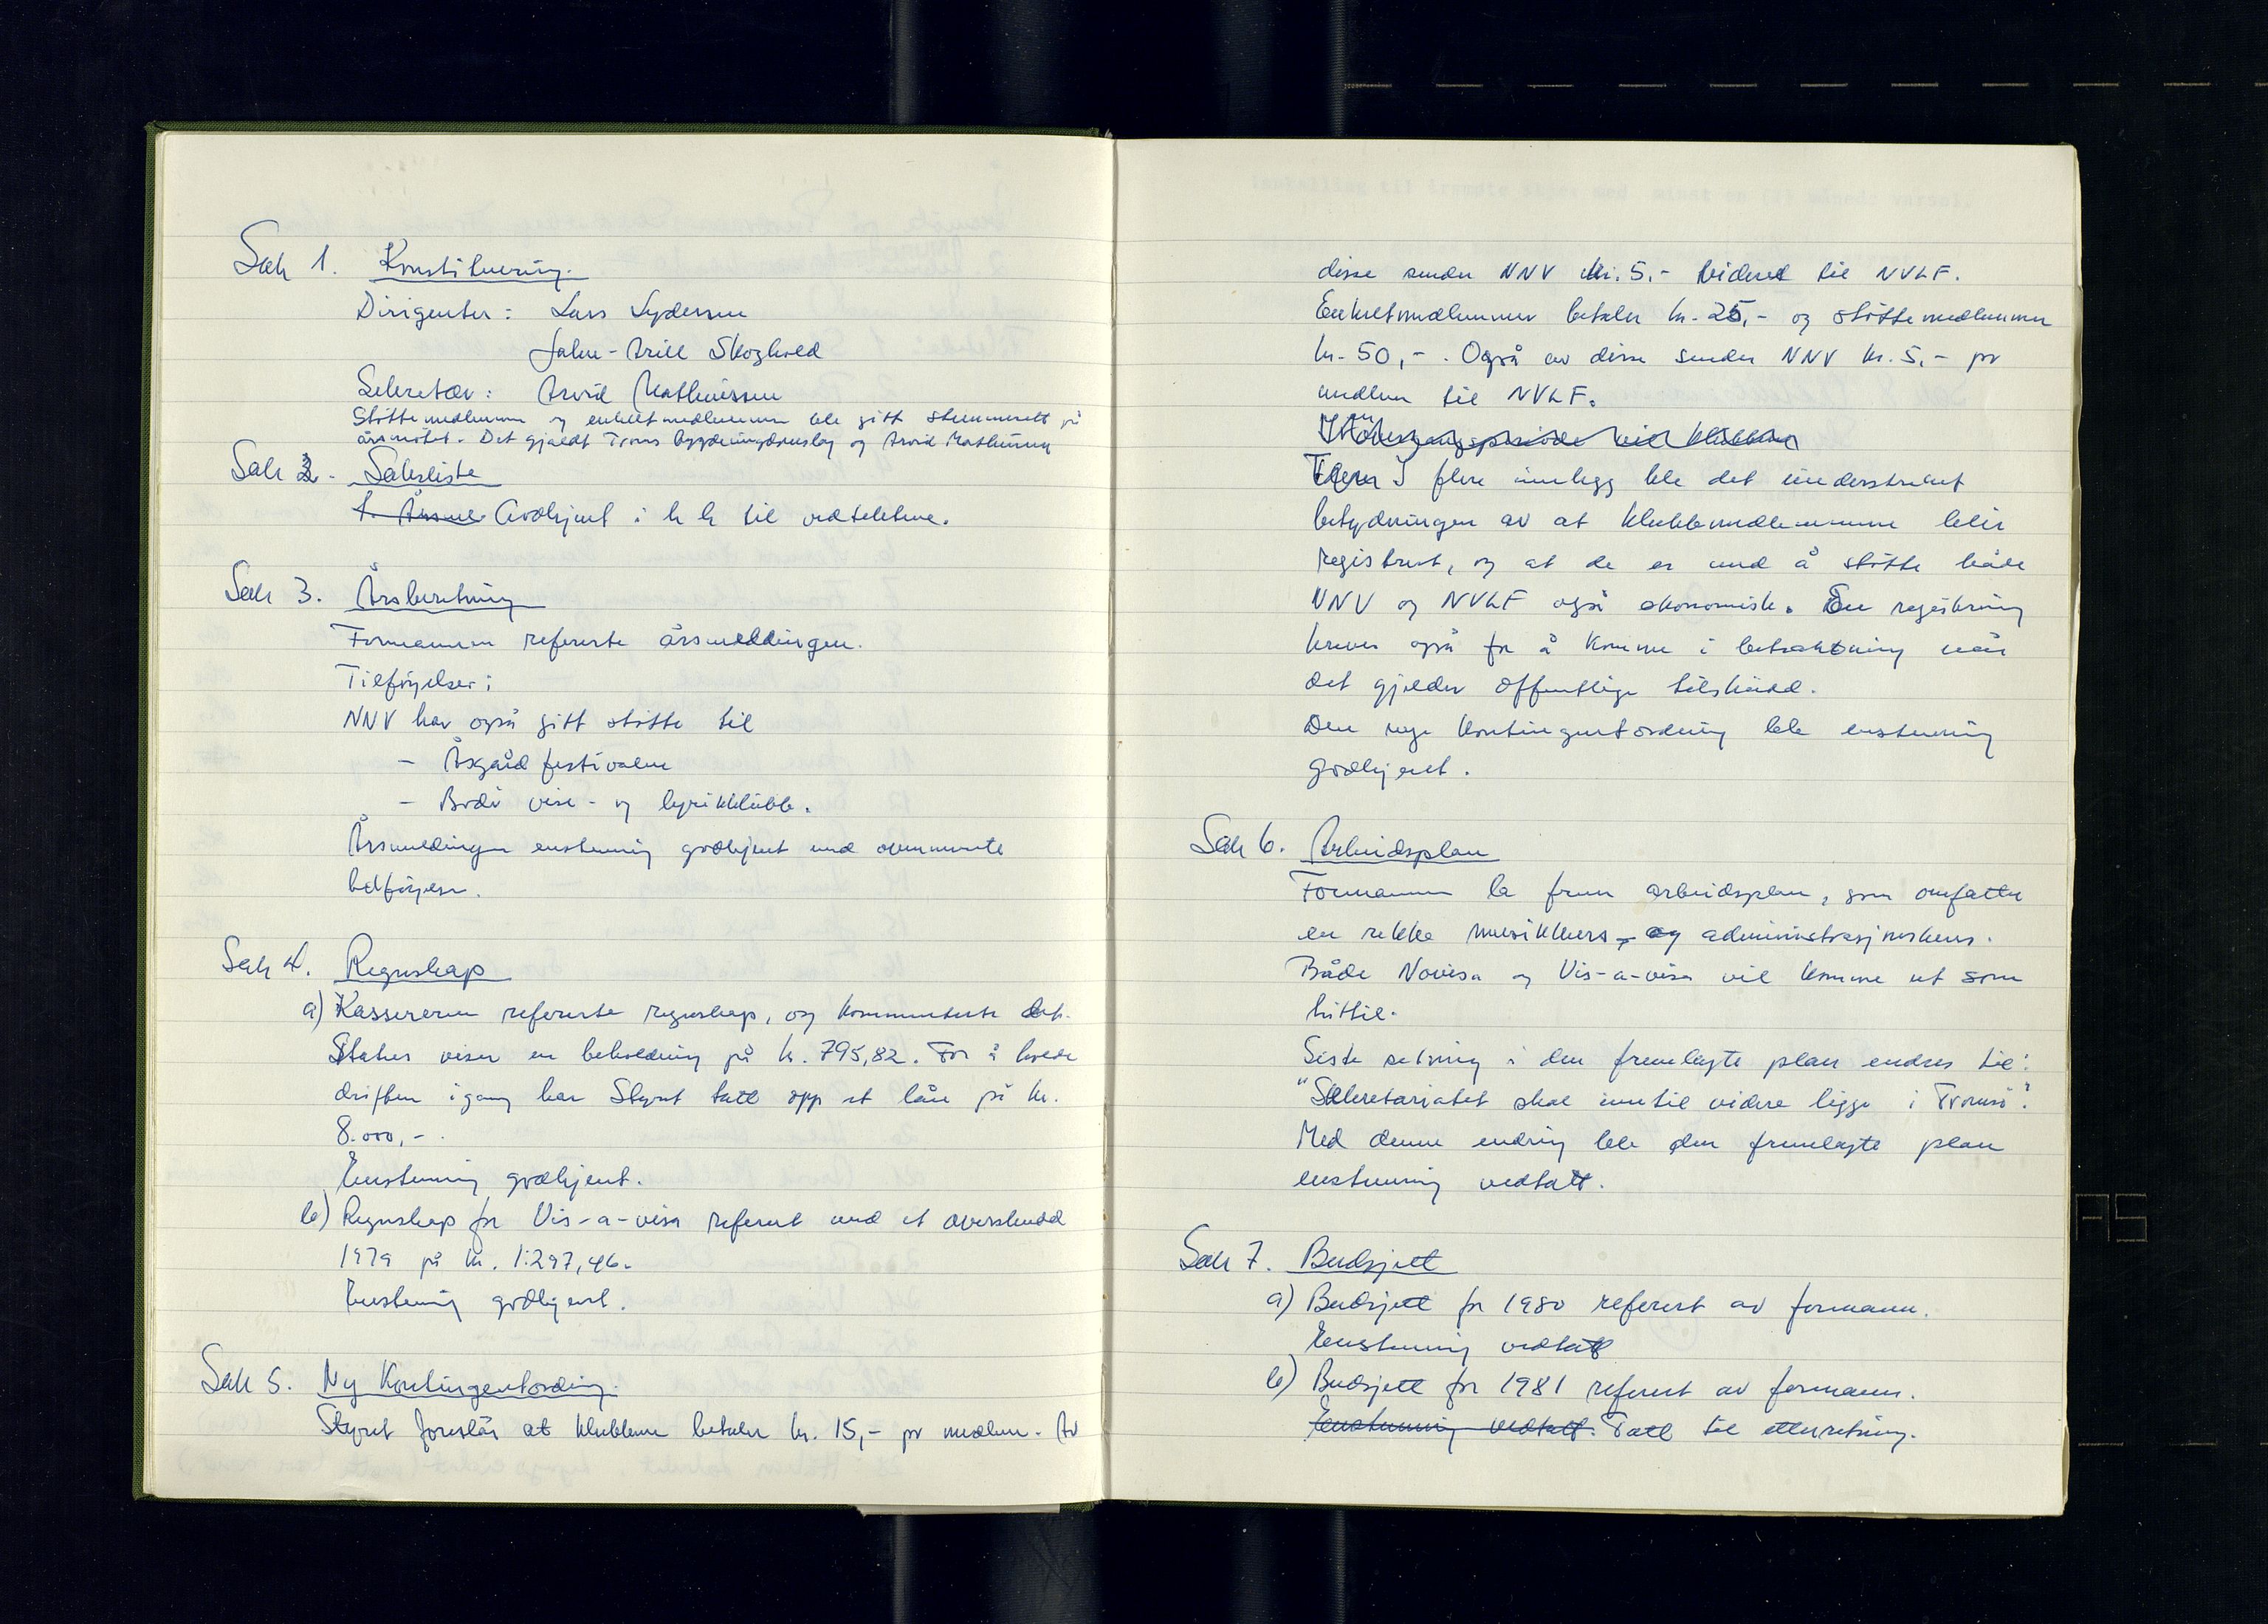 Sak 1. Konstituering.
Dirigenter: Lars Lydersen
John-Arill Skoghold
Sekretær: Arvid Mathisen
Støttemedlemmer og enkeltmedlemmer ble gitt stemmerett på
årsmøtet. Det gjaldt Troms bygdeungdomslag og Arvid Mathisen
Sak 2. Saksliste
1. Årsme Godkjent i h h til vedtektene.
Sak 3. Årsberetning
Formannen refererte årsmeldingen.
Tilføyelser:
NNV har også gitt støtte til
- Åsgård festivalen
- Bodø vise- og lyrikklubb.
Årsmeldingen enstemmig godkjent med ovennevnte
tilføyelser.
Sak 4. Regnskap
a) Kassereren refererte regnskap, og kommenterte det.
Status viser en beholdning på kr. 795,82. For å holde
driften igang har Styret tatt opp et lån på kr.
8.000,-.
Enstemmig godkjent.
b) Regnskap for Vis-a-visa referert med et overskudd
1979 på kr. 1.297,46.
Enstemmig godkjent.
Sak 5. Ny Kontingentordning.
Styret foreslår at klubbene betaler kr. 15,- pr medlem. Av
disse sender NNV kr. 5.- videre til NVLF.
Enkeltmedlemmer betaler kr. 25,- og støttemedlemmer
kr. 50,-. Også av disse sender NNV kr. 5,- pr
medlem til NVLF.
vil klubbene
I flere innlegg ble det understreket
betydningen av at klubbmedlemmene blir
registrert, og at de er med å støtte både
NNV og NVLF også økonomisk. En registrering
kreves også for å komme i betraktning når
det gjelder offentlige tilskudd.
Den nye kontingentordning ble enstemmig
godkjent.
Sak 6. Arbeidsplan
Formannen la fram arbeidsplan, som omfatter
en rekke musikkurs, og administrasjonskurs.
Både Novisa og Vis-a-visa vil komme ut som
hittil.
Siste setning i den fremlagte plan endres til:
"Sekretariatet skal inntil videre ligge i Tromsø".
Med denne endring ble den fremlagte plan
enstemmig vedtatt.
Sak 7. Budsjett
a) Budsjett for 1980 referert av formann.
Enstemmig vedtatt
b) Budsjett for 1981 referert av formann.
Enstemmig vedtatt. Tatt til etterretning.